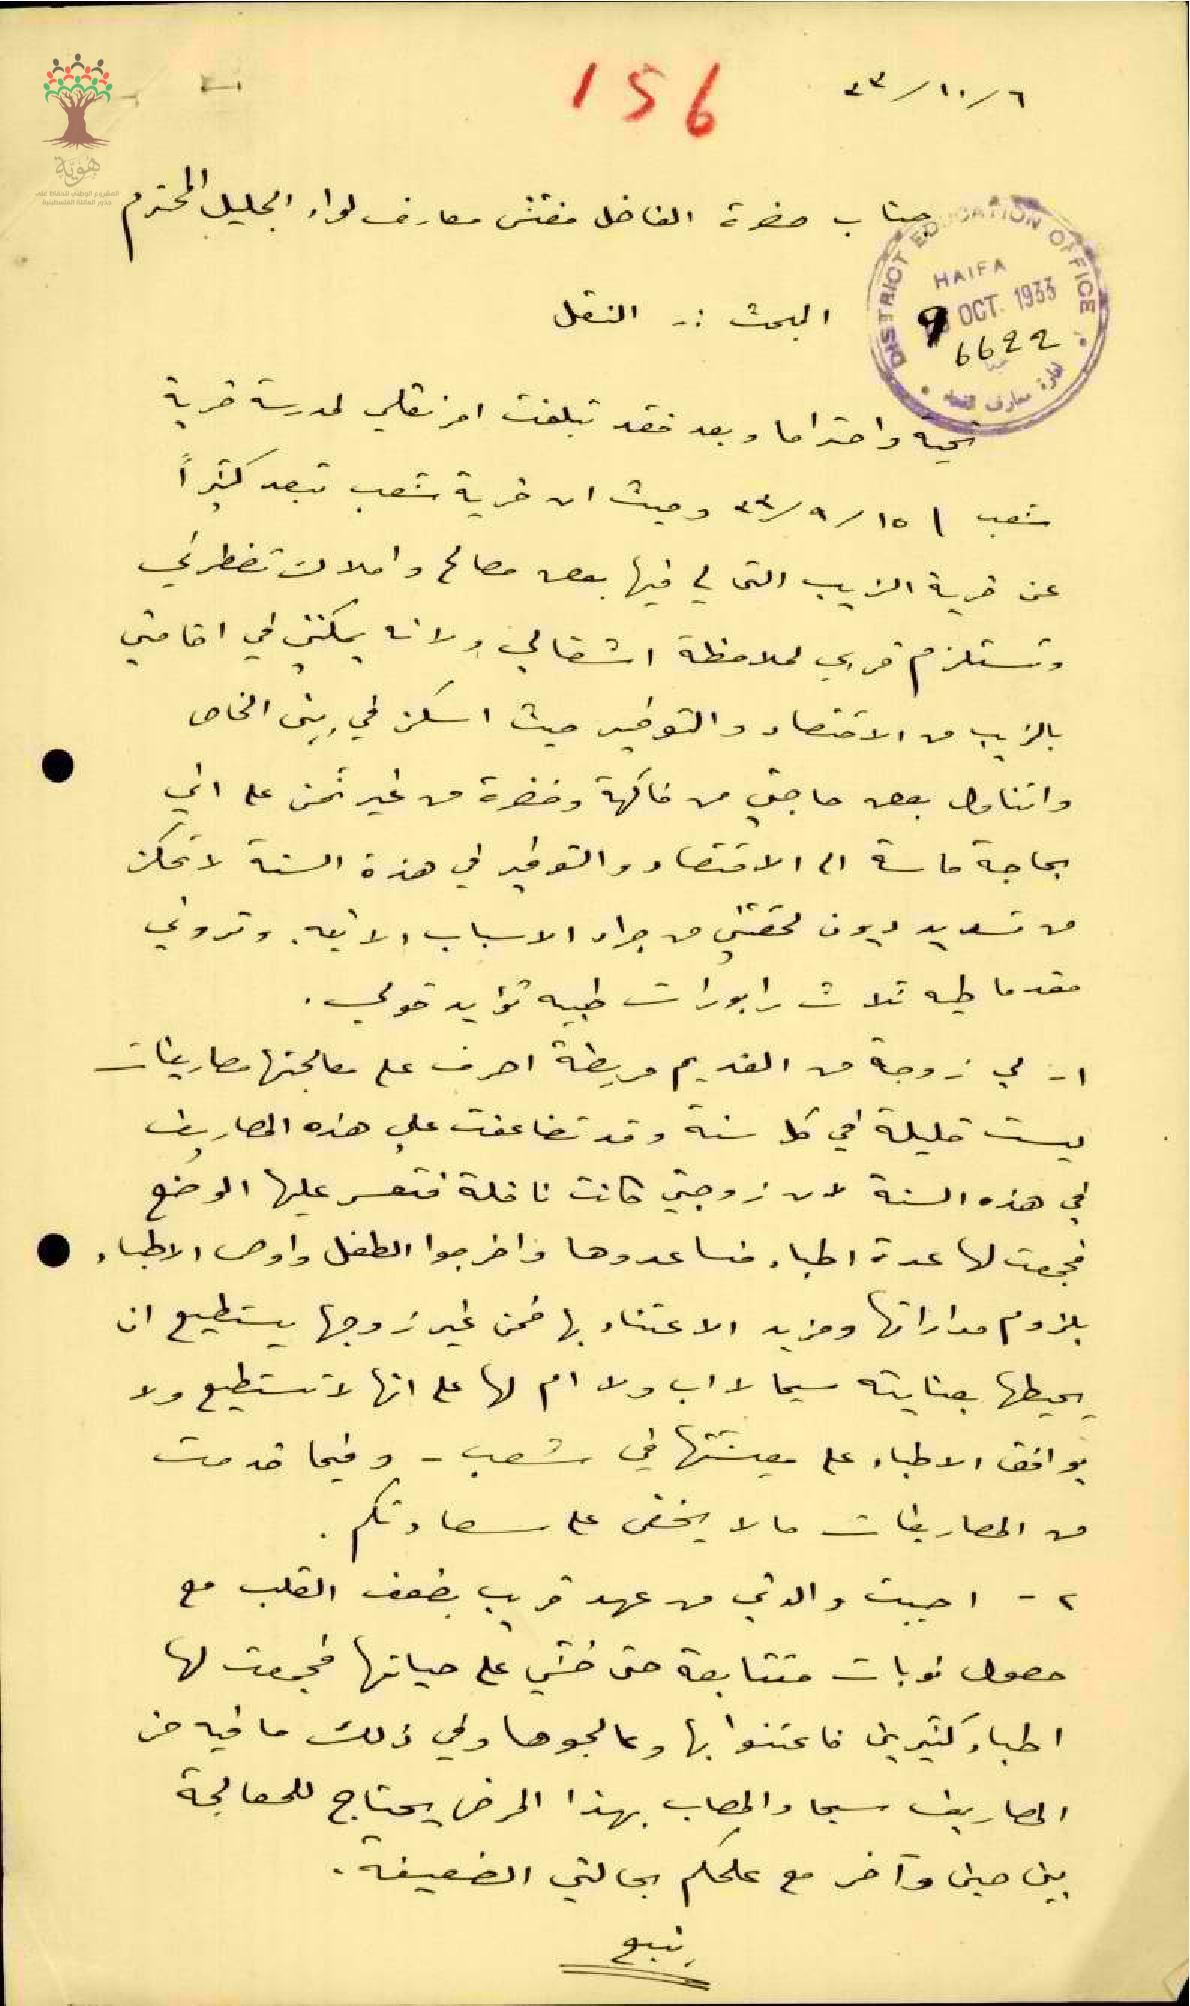 156
٣٣/١٠/٦
هوية
المشروع الوطني للحفاظ على
جذور العائلة الفلسطينية
جناب حضرة الفاضل مفتش معارف لواء الجليل المحترم
DISTRICT EDUCATION OFFICE
HAIFA
9 OCT. 1933
6622
البحث :- النقل
تحية واحتراما وبعد فقد تبلغت امر نقلي لمدرسة قرية
شعب ٣٣/٩/١٥ وحيث ان قرية شعب تبعد كثيراً
عن قرية الزيب التي لي فيها بعض مصالح واملاك تضطرني
وتستلزم قربي لملاحظة اشغالي ولانه يمكنني في اقامتي
بالزيب من الاقتصاد والتوفير حيث اسكن في بيتي الخاص
واتناول بعض حاجتي من فاكهة وخضرة من غير ثمن على اني
بحاجة ماسة الى الاقتصاد والتوفير في هذه السنة لاتمكن
من تسديد ديون لحقتني من جراء الاسباب الاتيه. وتروني
مقدما طيه ثلاث رابورات طبيه تؤيد قولي.
١- لي زوجة من القديم مريضة اصرف على معالجتها مصاريفات
ليست قليلة في كل سنة وقد تضاعفت علي هذه المصاريف
في هذه السنة لان زوجتي كانت فتعسر عليها الوضع
فجمعت لها عدة اطباء فساعدوها واخرجوا الطفل واوصى الاطباء
بلزوم مداراتها ومزيد الاعتناء بها فمن غير زوجها يستطيع ان
يحيطها بعنايته سيما لا اب ولا ام لها على انها لا تستطيع ولا
يوافق الاطباء على معيشتها في شعب - وفيما قدمت
من المصاريفات ما لا يخفى على سعادتكم.
٢- اصيبت والدتي من عهد قريب بضعف القلب مع
حصول نوبات متتابعة حتى خشي على حياتها فجمعت لها
اطباء كثيرين فاعتنوا بها وعالجوها وفي ذلك ما فيه من
المصاريف سيما والمصاب بهذا المرض يحتاج للمعالجة
بين حين وآخر مع علمكم بحالتي الضعيفة.
يتبع